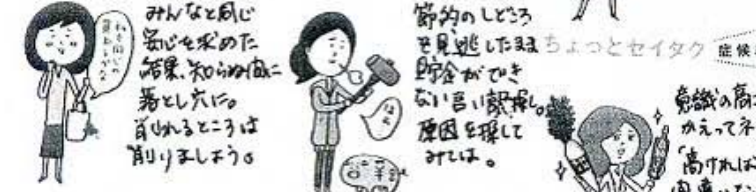 みんなと同じ
安心を求めた
結果、知らぬ間に
落とし穴に。
削れるところは
削りましょう。
私も同じの
節約のしどころ
を見逃したまま
貯金ができ
ない言い訳探し。
原因を探して
みては。
はぁ
ちょっとゼイタク
症候
意識の高
かえってス
高ければ